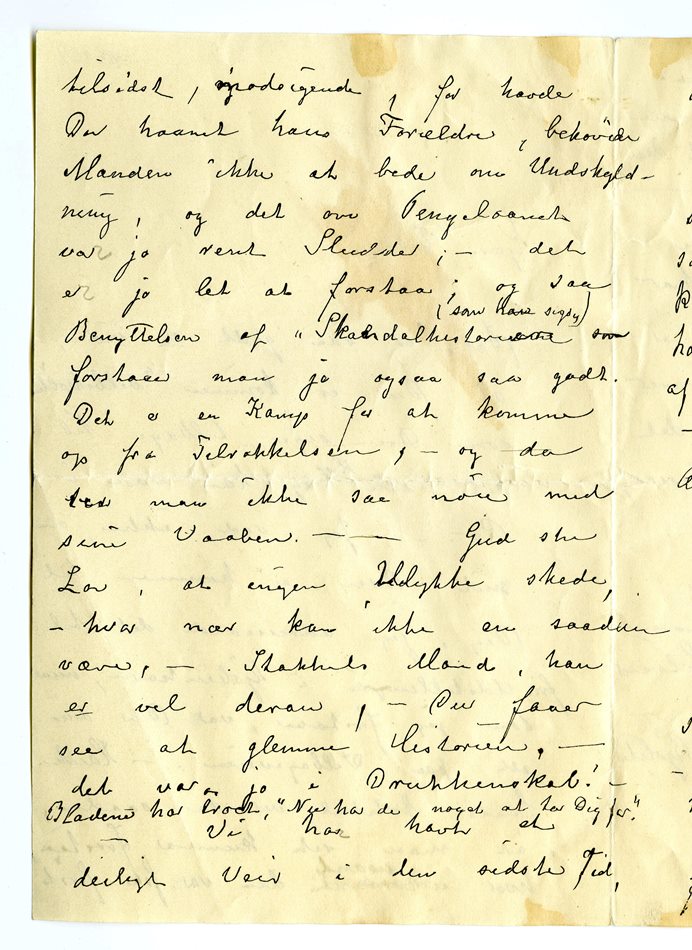 tilsidst, modsigende, for havde
Du haanet hans Forældre, behövede
Manden ikke at bede om Undskyld-
ning, og det om Pengelaanet
var jo rent Sludder; - det
er jo let at forstaa; og saa
(som han siger)
Benyttelsen af "Skandalhistorien
forstaaer man jo ogsaa saa godt.
Det er en Kamp for at komme
op fra Tilrakkelsen, - og da
man ikke saa nöie med
sine Vaaben. - - Gud ske
Lov, at ingen Ulykke skede,
- hvor nær kan ikke en saadan
være, - . Stakkels Mand, han
er vel deran, - Du faaer
see at glemme Historien, -
det var jo i Drukkenskab! -
Bladene har troet, "Nu har de noget at ta Dig for".
- Vi har havt et
deiligt Veir i den sidste Tid,